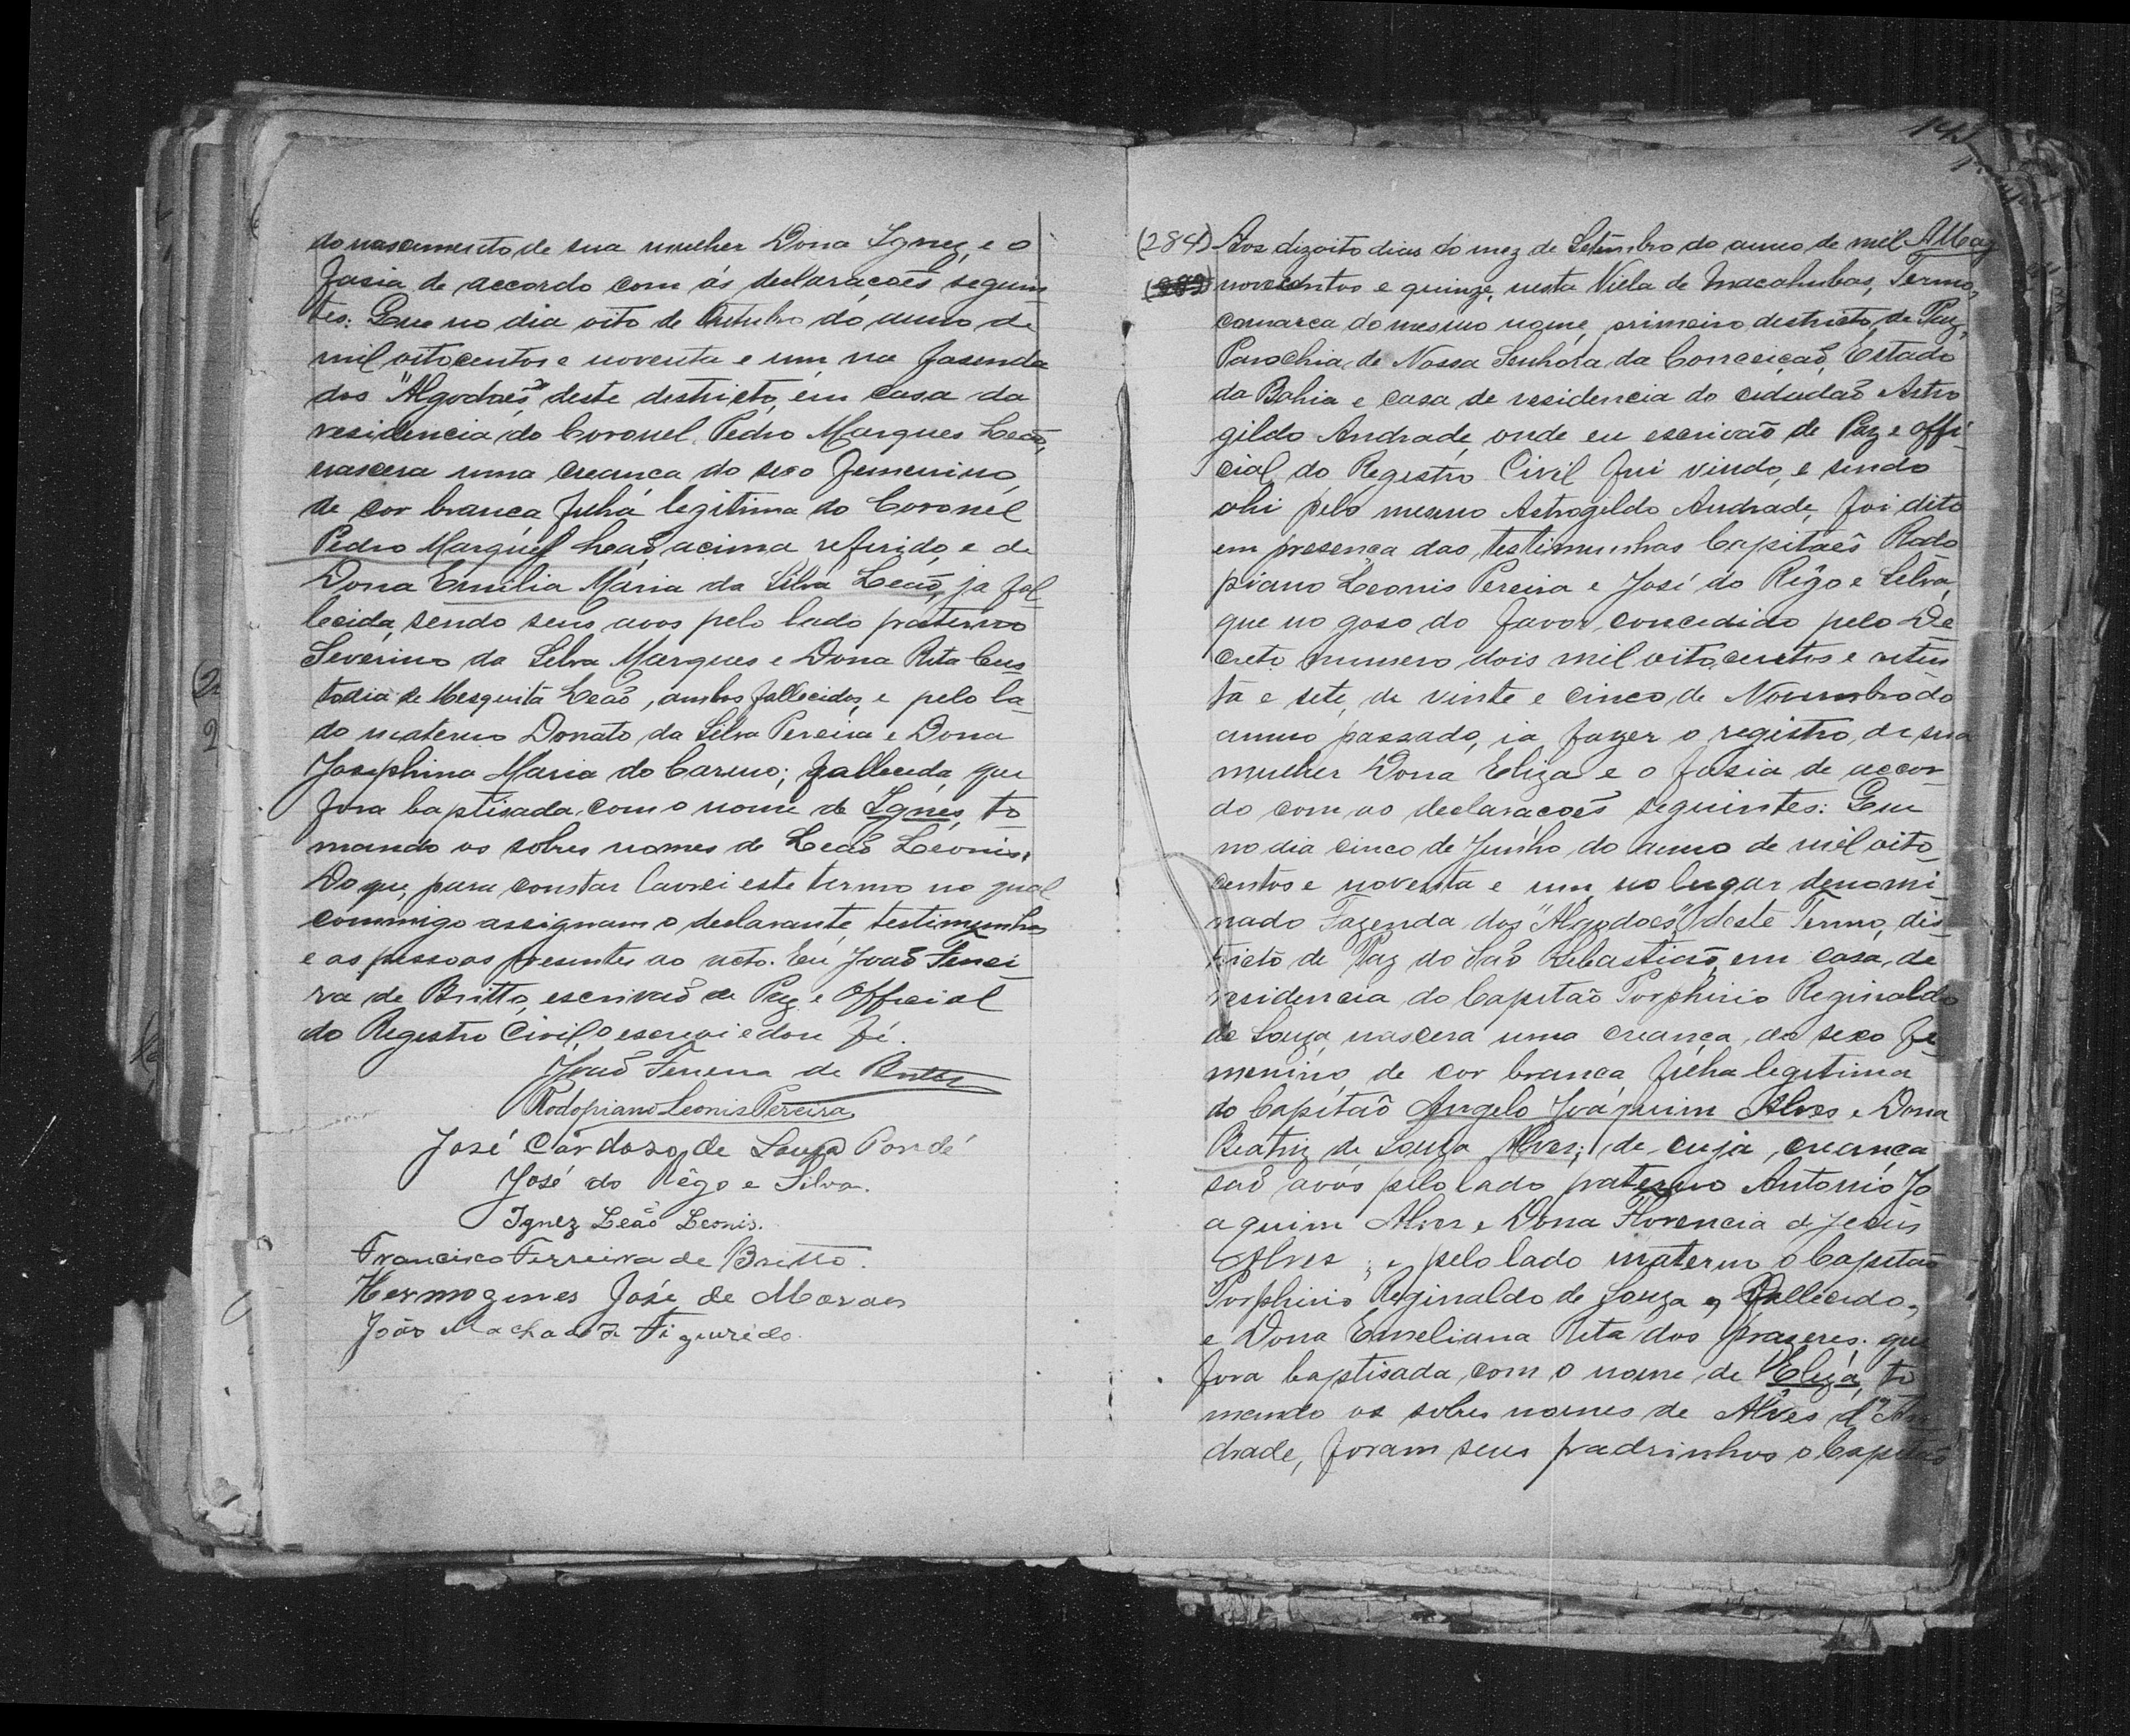 do nascimento de sua mulher Dona Ignez, e o
fasia de accordo com ás declaraçoẽs seguin
tes: Que no dia oito de Outubro do anno de
mil oitocentos e noventa e um, na fasenda
dos "Algodoẽs" deste destricto, em casa da
residencia do Coronel Pedro Marques Leaõ,
nascera uma creança do sexo femenino,
de cor branca, filha legitima do Coronel
Pedro Marques Leaõ, acima referido, e de
Dona Emilia Maria da Silva Leaõ, ja fal-
lecida, sendo seus avos pelo lado paterno
Severino da Silva Marques e Dona Rita Cus
todia de Mesquita Leaõ, ambos fallecidos, e pelo la-
do materno Donato da Silva Pereira e Dona
Josephina Maria do Carmo; fallecida, que
fora baptisada com o nome de Ignes, to-
mando os sobres nomes de Leaõ Leonis.
Do que, para constar lavrei este termo no qual
commigo assignam o declarante, testimunhas
e as pessoas presentes ao acto. Eu Joaõ Ferrei
ra de Britto, escrivaõ de Paz e Official
do Registro Civil, o escrevi e dou fé.
Joaõ Ferreira de Britto
Rodopiano Leonis Pereira
José Cardoso de Souza Pondé
José do Rêgo e Silva.
Ignez Leaõ Leonis.
Francisco Ferreira de Britto.
Hermogenes José de Moraes
João Machado de Figueredo.
141
(284) Aos dizoito dias do mez de Setembro do anno de mil
novecentos e quinze, nesta Villa de Macahubas, Termo,
comarca do mesmo nome, primeiro destricto de Paz,
Parochia de Nossa Senhora da Conceiçaõ, Estado
da Bahia e casa de residencia do cidadaõ Astro
gildo Andrade, onde eu escrivaõ de Paz e offi-
cial do Registro Civil fui vindo, e sendo
ahi pelo mesmo Astrogildo Andrade, foi dito
em presença das testimunhas Capitaẽs Rodo
piano Leonis Pereira e José do Rêgo e Silva,
que no goso do favor concedido pelo De
creto numero dois mil oitocentos e oiten
ta e sete, de vinte e cinco de Novembro do
anno passado, ia fazer o registro de sua
mulher Dona Eliza e o fasia de accor
do com as declaracoẽs seguintes: Que
no dia cinco de Junho do anno de mil oito-
centos e noventa e um, no lugar denomi
nado Fazenda dos "Algodoẽs", deste Termo, dis-
tricto de Paz do Saõ Sebastiaõ, em casa de
residencia do Capitão Porphirio Reginaldo
de Souza, nascera uma creança, do sexo fe-
menino, de cor branca, filha legitima
do Capitão Angelo Joaquim Alves e Dona
Beatriz de Souza Alves; de cuja creança
saõ avós pelo lado paterno Antonio Jo
aquim Alves e Dona Florencia de Jesus
Alves; e pelo lado materno o Capitaõ
Porphirio Reginaldo de Souza, fallecido,
e Dona Emeliana Rita dos prazeres: que
fora baptisada com o nome de Eliza, to
mando os sobres nomes de Alves d'An
drade, foram seus padrinhos o Capitaõ